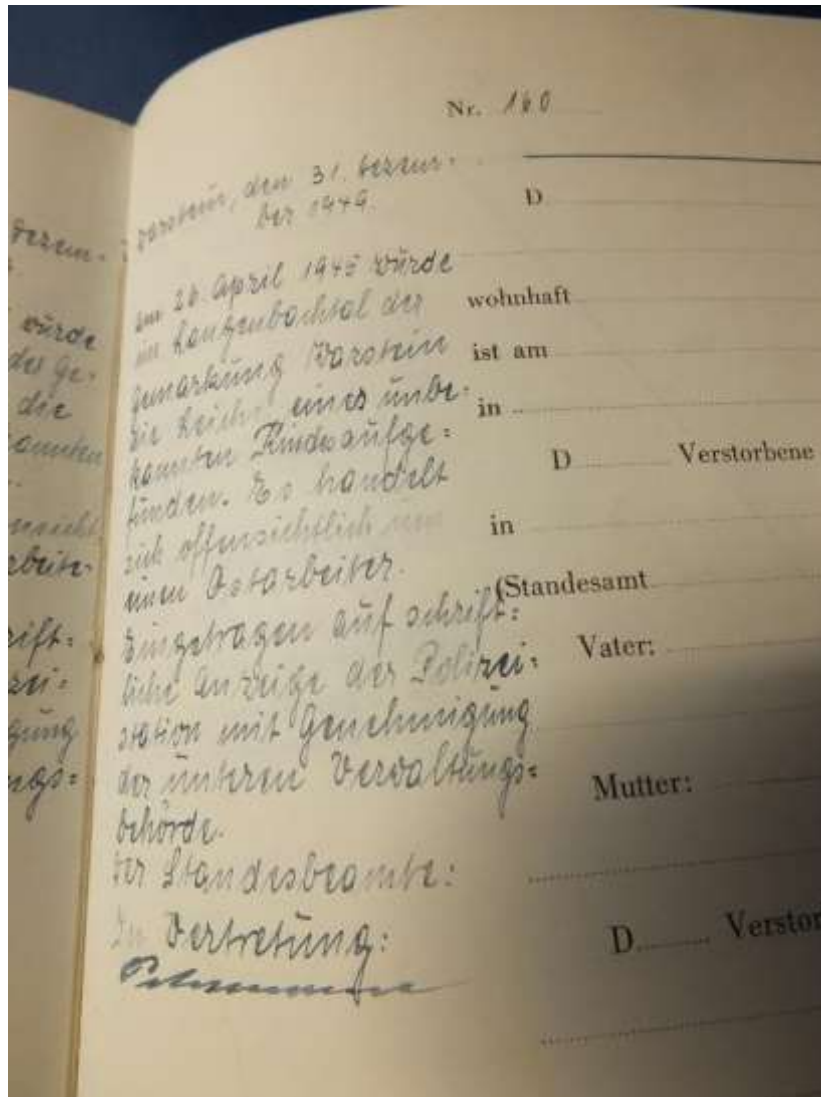 Nr. 160
Warstein, den 31. Dezem-
ber 1949.
Am 26. April 1945 wurde
im Langenbachtal der
Gemarkung Warstein
die Leiche eines unbe-
kannten Kindes aufge=
funden. Es handelt
sich offensichtlich um
einen Ostarbeiter.
Eingetragen auf schrift=
liche Anzeige der Polizei=
station mit Genehmigung
der unteren Verwaltungs=
behörde.
Der Standesbeamte:
In Vertretung:
D
wohnhaft
ist am
in
D Verstorbene
in
(Standesamt
Vater:
Mutter:
D Verstor
Dezem-
wurde
der Ge-
die
kannten
rbeite-
rift=
zei=
gung
ngs=